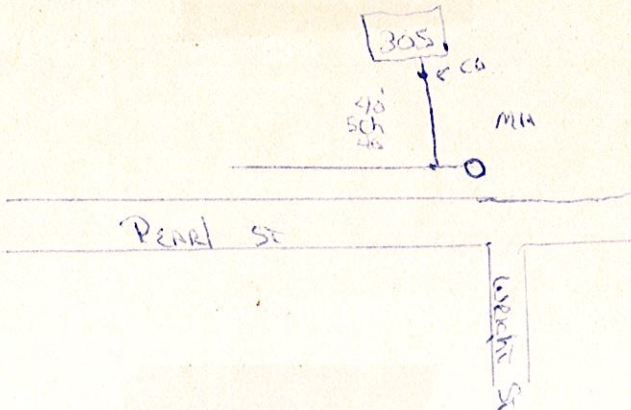 305
CO
40'
Sch
40
MH
PEARl ST
Wright St